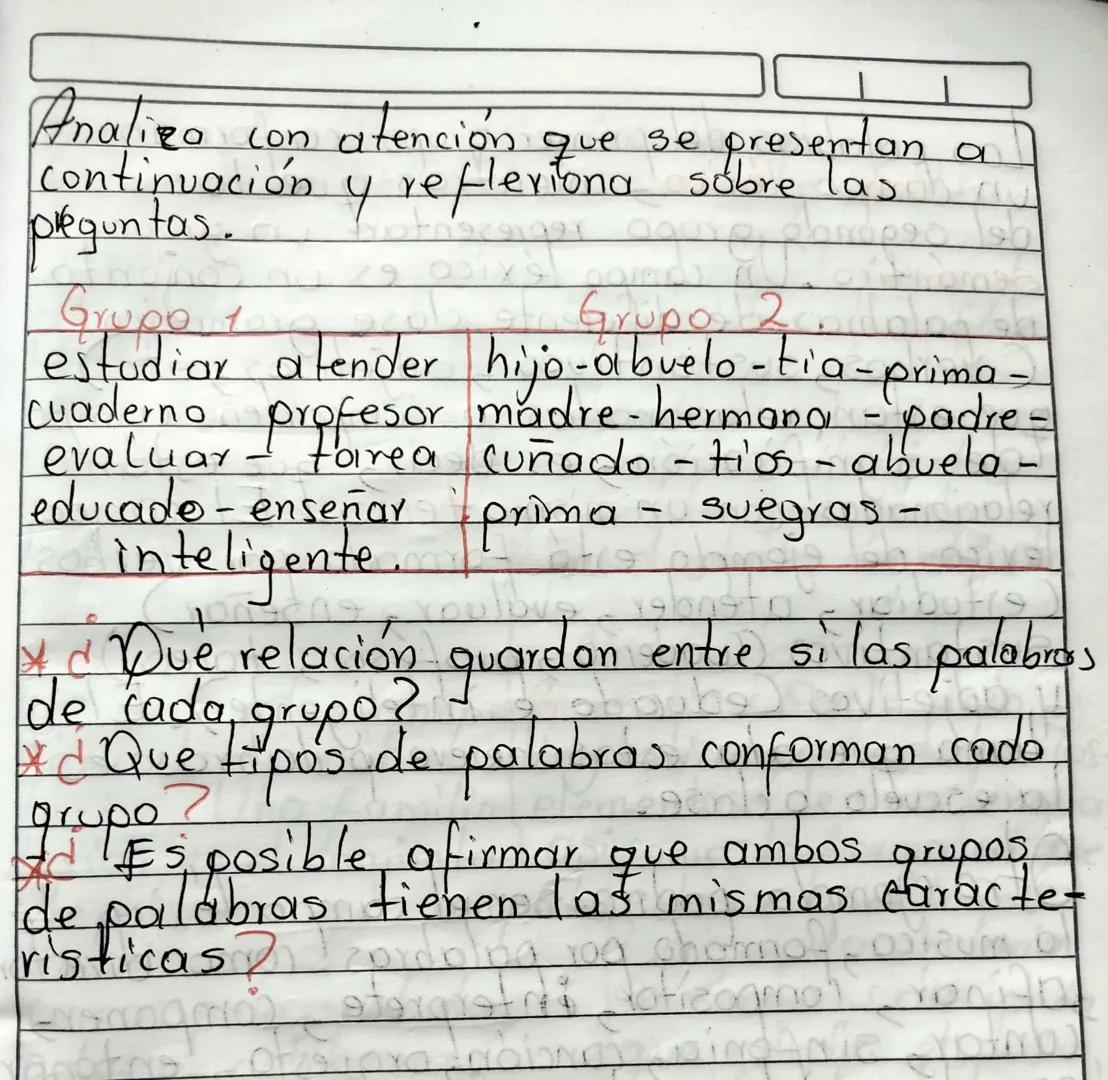 Analizo con atención que se presentan a
continuación y reflexiona sobre las
preguntas.
Grupo 1 Grupo 2.
estudiar atender hijo-abuelo-tia-prima-
cuaderno profesor madre-hermana-padre-
evaluar- tarea cuñado-tios-abuela-
educado-enseñar prima- suegras-
inteligente.
* ¿Qué relación guardan entre si las palabras
de cada grupo?
* ¿Que tipos de palabras conforman cada
grupo?
* ¿Es posible afirmar que ambos grupos
de palabras tienen las mismas caracte-
risticas?